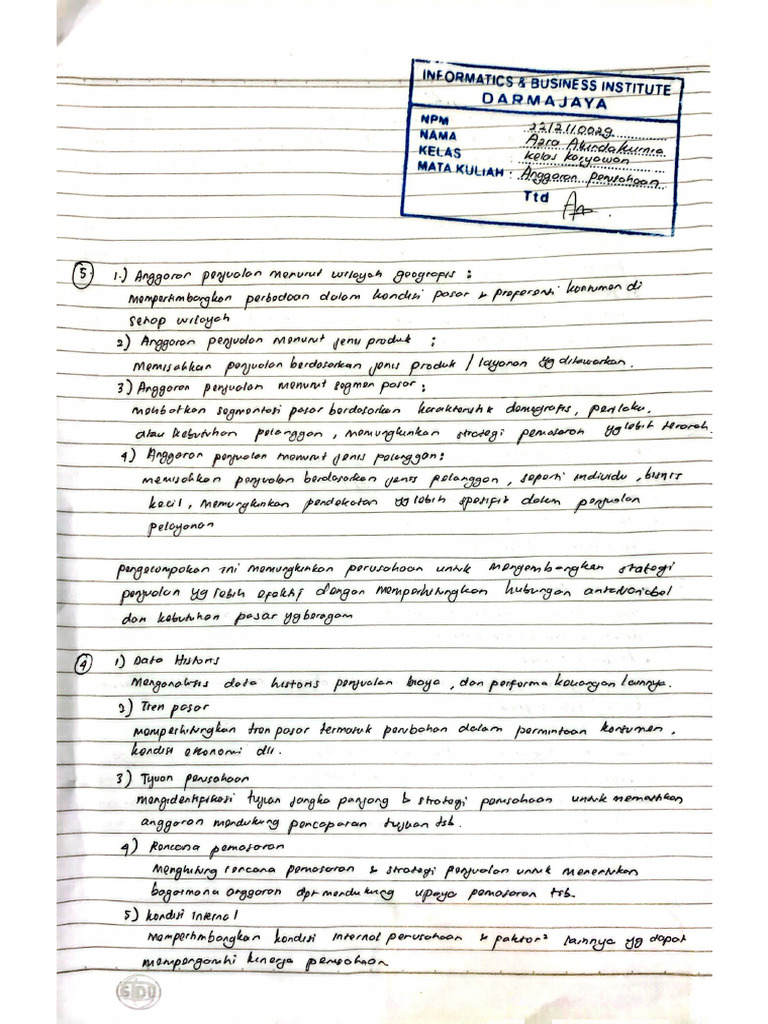 INFORMATICS & BUSINESS INSTITUTE
DARMAJAYA
NPM 2212110029
NAMA Azra Alundakurnia
KELAS : kelas karyawan
MATA KULIAH : Anggaran perusahaan
Ttd
5 1.) Anggaran penjualan menurut wilayah geografis :
mempertimbangkan perbedaan dalam kondisi pasar & preferensi konsumen di
setiap wilayah
2) Anggaran penjualan menurut jenis produk :
Memisahkan penjualan berdasarkan jenis produk / layanan yg ditawarkan.
3) Anggaran penjualan menurut segmen pasar :
melibatkan segmentasi pasar berdasarkan karakteristik demografis, perilaku,
atau kebutuhan pelanggan, memungkinkan strategi pemasaran yg lebih terarah.
4) Anggaran penjualan menurut jenis pelanggan :
memisahkan penjualan berdasarkan jenis pelanggan, seperti individu, bisnis
kecil, memungkinkan pendekatan yg lebih spesifik dalam penjualan
pelayanan
pengelompokan ini memungkinkan perusahaan untuk mengembangkan strategi
penjualan yg lebih efektif dengan memperhitungkan hubungan antarvariabel
dan kebutuhan pasar yg beragam
4 1) Data Historis
Menganalisis data historis penjualan biaya, dan performa keuangan lainnya.
2) Tren pasar
memperhitungkan tren pasar termasuk perubahan dalam permintaan konsumen,
kondisi ekonomi dll.
3) Tujuan perusahaan
mengidentifikasi tujuan jangka panjang & strategi perusahaan untuk memastikan
anggaran mendukung pencapaian tujuan tsb.
4) Rencana pemasaran
Menghitung rencana pemasaran & strategi penjualan untuk menentukan
bagaimana anggaran dpt mendukung upaya pemasaran tsb.
5) kondisi internal
mempertimbangkan kondisi internal perusahaan & faktor² lainnya yg dapat
mempengaruhi kinerja perusahaan
SIDU